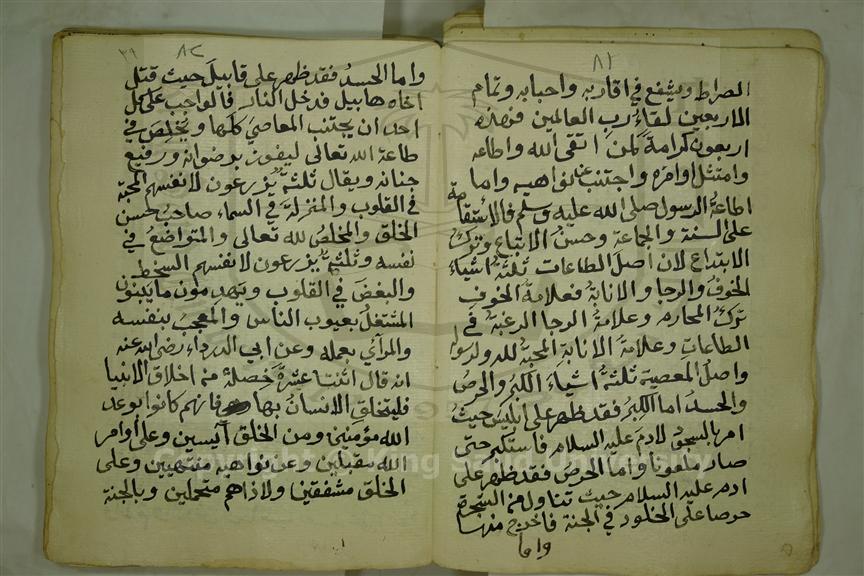 ٨١
الصراط ويشفع في اقاربه واحبابه وتمام
الاربعين لقاء رب العالمين فهذه
اربعون كرامة لمن اتقى الله واطاعه
وامتثل اوامره واجتنب عن نواهيه واما
اطاعة الرسول صلى الله عليه وسلم فالاستقامة
على السنة والجماعة وحسن الاتباع وترك
الابتداع لان اصل الطاعات ثلثة اشياء
الخوف والرجا والانابة فعلامة الخوف
ترك المحارم وعلامة الرجا الرغبة في
الطاعات وعلامة الانابة المحبة لله ولرسوله
واصل المعصية ثلثة اشياء الكبر والحرص
والحسد اما الكبر فقد ظهر على ابليس حيث
امر بالسجود لادم عليه السلام فاستكبر حتى
صار ملعونا واما الحرص فقد ظهر على
ادم عليه السلام حيث تناول من الشجرة
حرصا على الخلود في الجنة فاخرج منها
واما
٨٢
٣٩
واما الحسد فقد ظهر على قابيل حيث قتل
اخاه هابيل فدخل النار فالواجب على كل
احد ان يجتنب المعاصي كلها ويخلص في
طاعة الله تعالى ليفوز برضوانه ورفيع
جنانه ويقال ثلثة يزرعون لانفسهم المحبة
في القلوب والمنزلة في السماء صاحب حسن
الخلق والمخلص لله تعالى والمتواضع في
نفسه وثلثة يزرعون لانفسهم السخط
والبغض في القلوب ويهدمون ما يبنون
المشتغل بعيوب الناس والمعجب بنفسه
والمرائي بعمله وعن ابي الدرداء رضي الله عنه
انه قال اثنتا عشرة خصلة من اخلاق الانبيا
فليتخلق الانسان بها فانهم كانوا بوعد
الله مؤمنين ومن الخلق آيسين وعلى اوامر
الله مقبلين وعن نواهيه منتهيين وعلى
الخلق مشفقين ولاذاهم متحملين وبالجنة
Copyright © King Saud University